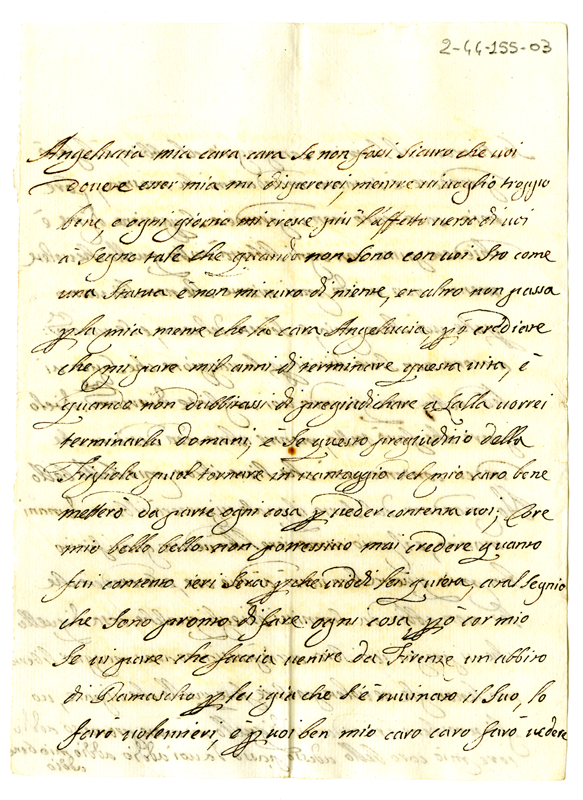 2-44-155-03
Angeluccia mia cara cara se non fosi sicuro che voi
dovete esser mia mi dispererei, mentre vi voglio troppo
bene, e ogni giorno mi cresce più l'affetto verso di voi
à segno tale che quando non sono con voi sto come
una statua e non mi curo di niente, et altro non passa
p la mia mente che la cara Angeluccia, pò crediate
che mi pare mil anni di terminare questa vita, è
quando non dubbitassi di pregiudichare a Lalla vorrei
terminarla domani, è se questo pregiuditio della
Figliola puol tornare in vantaggio del mio caro bene
metterò da parte ogni cosa p veder contenta voi; Core
mio bello bello non potressivo mai credere quanto
fui contento ieri sera pche viddi lei quieta, a tal segnio
che sono pronto di fare ogni cosa pò cor mio
se vi pare che faccia venire da Firenze un abbito
di Damascho p lei gia che s'è ruvinato il suo, lo
farò volentieri, è p voi ben mio caro caro farò vedere